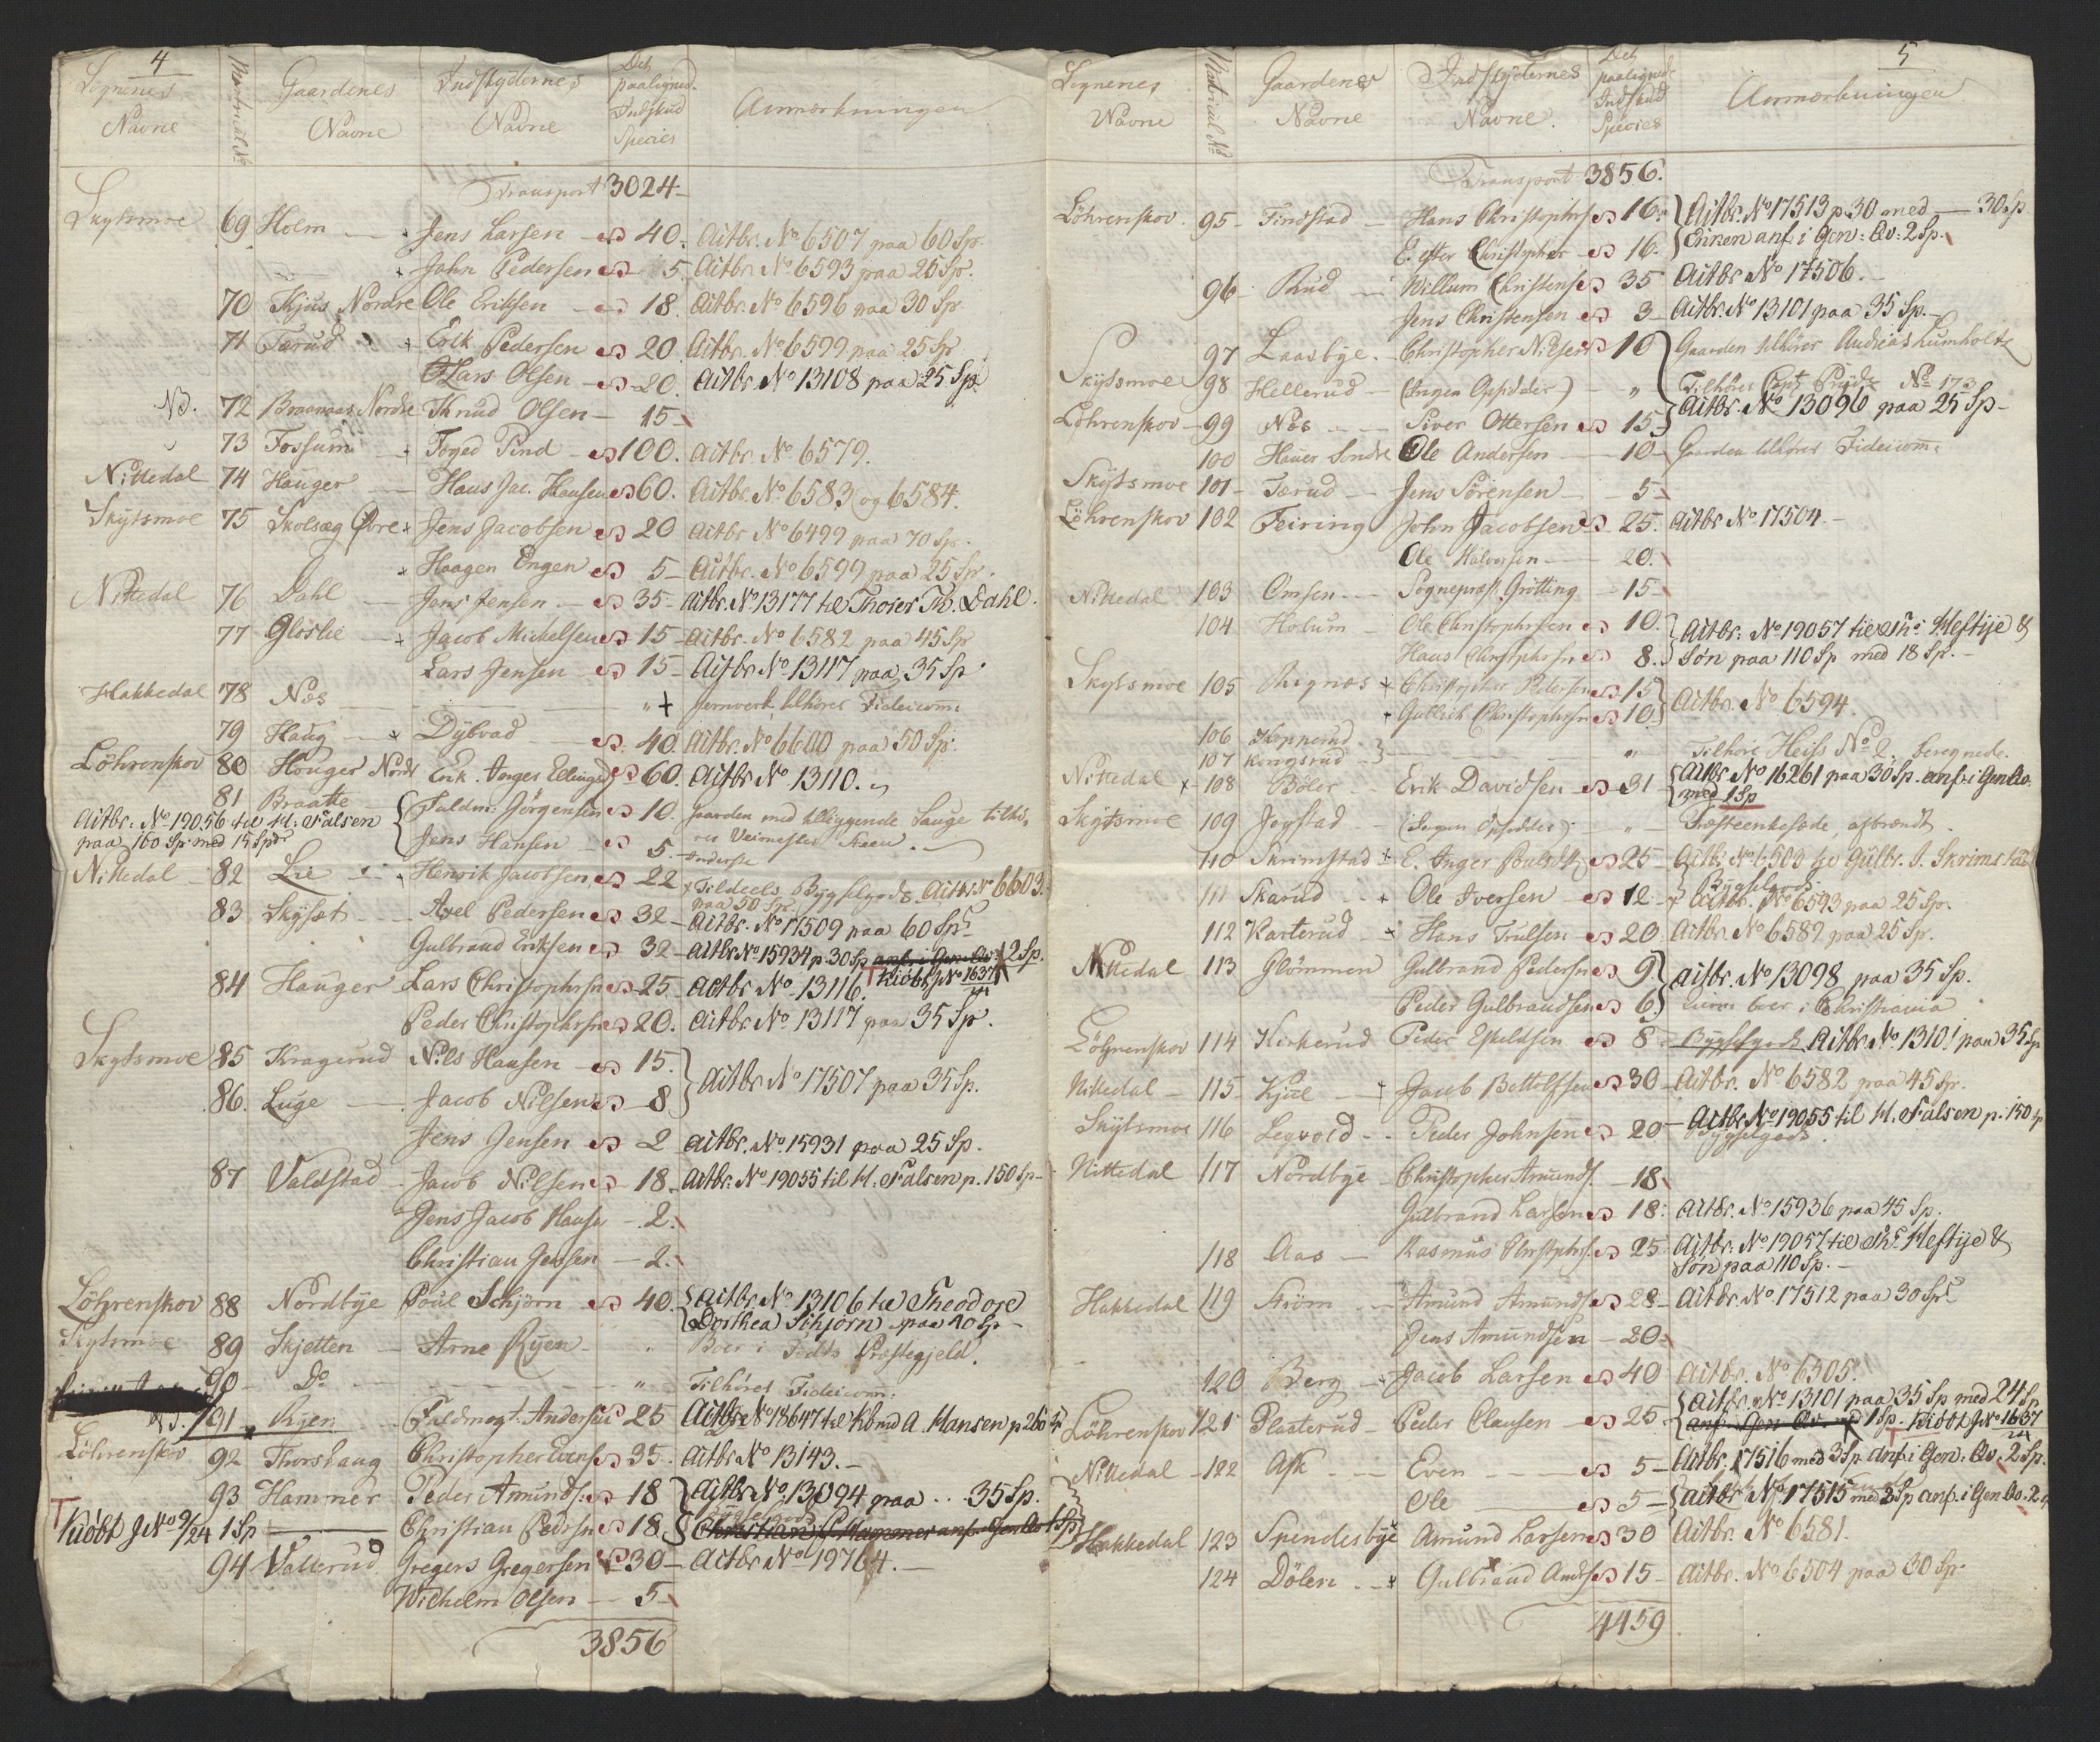 4
Sognenes Navne | Matricul No | Gaardenes Navne | Indskydernes Navne | Det paalignede Indskud Species | Anmærkninger
Transport 3024
Skytsmoe 69 Holm Jens Larsen 40. Actbr. No 6507 paa 60 Sp.
John Pedersen 5 Actbr. No 6593 paa 25 Sp.
70 Kjus Nordre Ole Eriksen 18. Actbr. No 6596 paa 30 Sp.
71 Tærud Erik Pedersen 20 Actbr. No 6599 paa 25 Sp
Lars Olsen 20. Actbr. No 13108 paa 25 Sp.
NB. 72 Braanaas Nordre Knud Olsen 15
73 Fossum Foged Pind 100. Actbr. No 6579.
Nittedal 74 Hauger Hans Jac. Hansen 60. Actbr. No 6583 og 6584.
Skytsmoe 75 Skolsæg Øvre Jens Jacobsen 20 Actbr No 6499 paa 70 Sp.
Haagen Engen 5 Actbr. No 6599 paa 25 Sp.
Nittedal 76 Dahl Jens Jensen 35 Actbr. No 13177 til Thorer Th. Dahl.
77 Gløslie Jacob Michelsen 15 Actbr. No 6582 paa 45 Sp
Lars Jensen 15 Actbr No 13117 paa 35 Sp.
Hakkedal 78 Næs " + Jernverk tilhører Fideicom:
79 Haug Dybvad 40. Actbr. No 6600 paa 50 Sp.
Löhrenskov 80 Houger Nordr Enk. Inger Ellingsd 60. Actbr No 13110.
81 Braatte Fuldm. Jørgensen 10. Gaarden med tilliggende Sauge tilhö-
Actbr: No 19056 til H: Falsen paa 160 Sp. med 15 Spdr Jens Hansen 5. rer Veimester Skeen.
Nittedal 82 Lie Henrik Jacobsen 22 Tildeels Bygselgods. Actbr No 6603.
paa 50 Sp.
83 Skysæt Axel Pedersen 32 Actbr. No 17509 paa 60 Spr
Gulbrand Eriksen 32 Actbr No 15934 p. 30 Sp anf. i Gen: Qv: 2 Sp.
Kiöbt J No 1637/24
84 Hauger Lars Christophersn 25 Actbr. No 13116.
Peder Christophersn 20. Actbr. No 13117 paa 35 Sp.
Skytsmoe 85 Kragerud Nils Hansen 15. Actbr No 17507 paa 35 Sp.
86. Luge Jacob Nilsen 8
Jens Jensen 2 Actbr. No 15931 paa 25 Sp.
87 Valdstad Jacob Nilsen 18 Actbr: No 19055 til H. Falsen p. 150 Sp
Jens Jacob Hansen 2.
Christian Jensen 2.
Löhrenskov 88 Nordbye Poul Schjörn 40. Actbr. No 13106 til Theodore
Dorthea Schjörn paa 40 Sp
Skytsmoe 89 Skjetten Arne Ryen " Boer i Fedts Præstegjeld.
90 Do " Tilhörer Fideicom:
91 Ryen Fuldmægt. Andersen 25 Actbr No 18647 til Kbmd A. Hansen p 260 Sp
Löhrenskov 92 Thorshaug Christopher Evens 35. Actbr No 13143.
93 Hammer Peder Amunds: 18 Actbr. No 13094 paa .. 35 Sp.
T Kiöbt J No 9/24 1 Sp Christian Pedersn 18. Christian P. Hammer anf. Gen Qv 1 Sp
94 Vallerud Gregers Gregersen 30 Actbr No 19764.
Wilhelm Olsen 5
3856
5
Sognenes Navne | Matricul No | Gaardenes Navne | Indskydernes Navne. | Det paalignede Indskud Species | Anmærkninger
Transport 3856.
Löhrenskov. 95 Findstad Hans Christophrs 16. Actbr. No 17513 p. 30 med 30 Sp
E. efter Christopher 16. Enken anf. i Gen: Qv: 2 Sp.
96 Rud Willum Christens 35 Actbr No 17506.
Jens Christensen 3 Actbr. No 13101 paa 35 Sp.
97 Laasbye. Christopher Nilsen 10 Gaarden tilhörer Andreas Lumholtz
Skytsmoe 98 Hellerud (Ingen Opsidder) " Tilhörer Capt No 173
Löhrenskov 99 Næs Siver Ottersen 15 Actbr. No 13096 paa 25 Sp
100 Hauer Söndre Ole Andersen 10 Gaarden tilhörer Fideicom:
Skytsmoe 101 Tærud Jens Sörensen 5
Löhrenskov 102 Feiring John Jacobsen 25. Actbr No 17504.
Ole Halvorsen 20.
Nittedal 103 Omsen Sognepræst Grötting 15
104 Holum Ole Christophersen 10. Actbr: No 19057 til Th: Heftye &
Hans Christophersn 8. Sön paa 110 Sp med 18 Sp.
Skytsmoe 105 Rignæs Christopher Pedersen 15 Actbr. No 6594.
Gullich Christophersn 10.
106 Kopperud
107 Kongsrud " Tilhöre Heiss No 2. beregnede.
Nittedal 108 Böler Erik Davidsen 31 Actbr No 16261 paa 30 Sp. anf. i Gen Qv.
med 1 Sp
Skytsmoe 109 Jogstad (Ingen Opsidder) " Præsteenkesæde, afbrændt.
110 Skrimstad E. Inger Poulsdtr 25 Actbr. No 6500 for Gulbr. J. Skrimstad
111 Skarud Ole Iversen 12 Bygselgods. Actbr. No 6593 paa 25 Sp.
112 Karterud Hans Trulsen 20 Actbr No 6589 paa 25 Sp.
Nittedal 113 Glömmen Gulbrand Pedersn 9 Actbr. No 13098 paa 35 Sp.
Peder Gulbrandsen 6 boer i Christiania
Löhrenskov 114 Kirkerud Peder Eskeldsen 8 Bygselgods Actbr No. 13101 paa 35 Sp
Nittedal 115 Kjul Jacob Bottolfsen 30 Actbr. No 6582 paa 45 Sp.
Skytsmoe 116 Legvold Peder Johnsen 20 Actbr No 19055 til H. Falsen p. 150 Sp
Bygselgods.
Nittedal 117 Nordbye Christopher Amunds. 18
Gulbrand Larsen 18. Actbr. No 15936 paa 45 Sp.
118 Aas Rasmus Christophrs. 25 Actbr. No 19057 til Th: Heftye &
Sön paa 110 Sp.
Hakkedal 119 Ström Amund Amunds 28 Actbr. No 17512 paa 30 Spr
Jens Amundsen 20
120 Berg Jacob Larsen 40 Actbr. No 6505.
Löhrenskov 121 Plaaterud Peder Clausen 25 Actbr. No 13101 paa 35 Sp med 24 Sp
anf. i Gen Qv med 1 Sp. Kiöbt J No 1637/24
Nittedal 122 Ask Even 5 Actbr. 17516 med 3 Sp anf. i Gen: Qv. 2 Sp.
Ole 5 Actbr No 17515 med 3 Sp anf. i Gen Qv. 2
Hakkedal 123 Spendesbye Amund Larsen 30 Actbr. No 6581.
124 Dölen Gulbrand Amds 15 Actbr. No 6504 paa 30 Sp.
4459